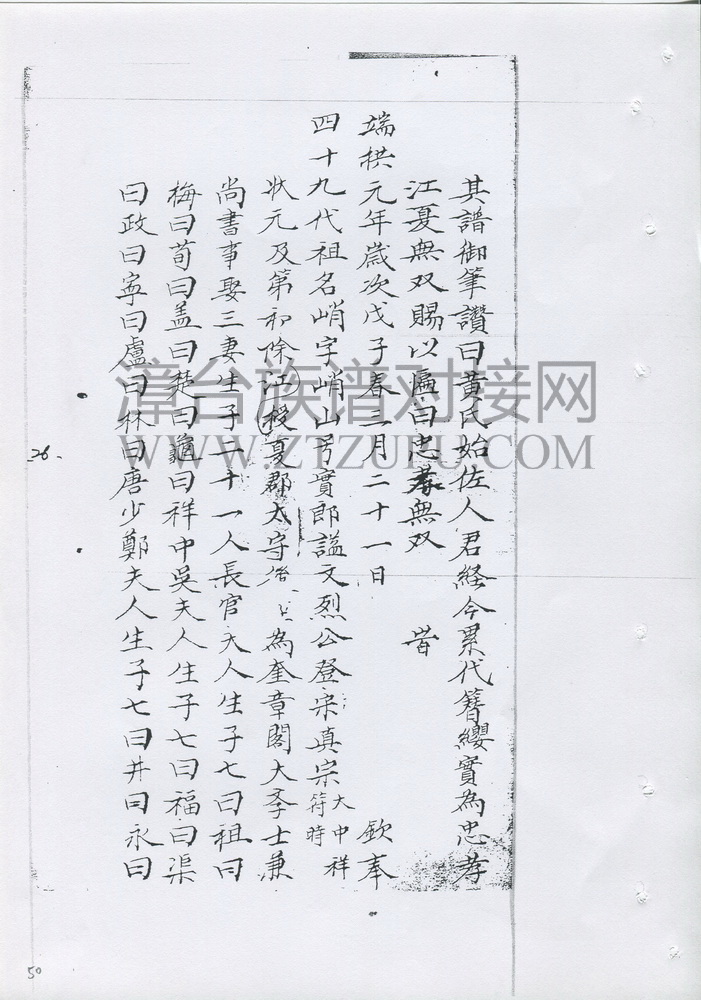 其譜御筆讚曰黄氏始佐人君経今累代簪纓實為忠孝
江夏無双賜以匾曰忠孝無双 昔
端拱元年歲次戊子春三月二十一日 欽奉
四十九代祖名峭字峭山号實郎謚文烈公登宋真宗大中祥符時
状元及第初除江夏郡太守後 為奎章閣大季士兼
尚書事娶三妻生子二十一人長官夫人生子七曰祖曰
梅曰荀曰盖曰楚曰龜曰祥中吳夫人生子七曰福曰渠
曰政曰寧曰盧曰林曰唐少鄭夫人生子七曰井曰永曰
漳台族谱对接网
WWW.ZTZUPU.COM
26.
50